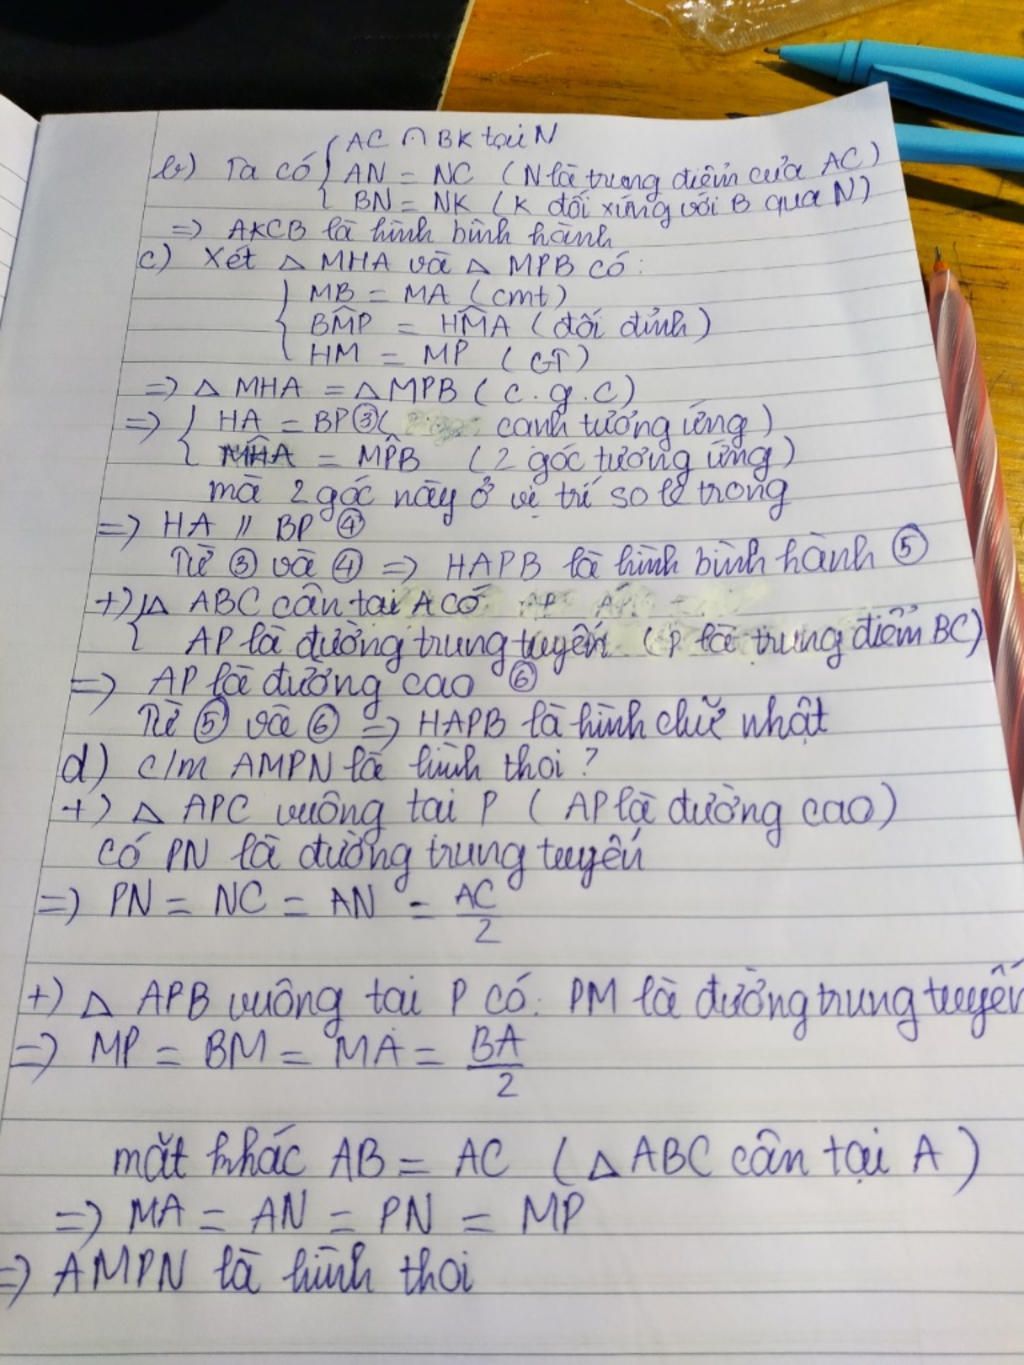 b) Ta có { AC ∩ BK tại N
AN = NC (N là trung điểm của AC)
BN = NK (K đối xứng với B qua N)
=> AKCB là hình bình hành
c) Xét △ MHA và △ MPB có:
{ MB = MA (cmt)
BM̂P = HM̂A (đối đỉnh)
HM = MP (GT)
=> △ MHA = △ MPB (c.g.c)
=> { HA = BP ③ ( cạnh tương ứng)
MĤA = MP̂B (2 góc tương ứng)
mà 2 góc này ở vị trí so le trong
=> HA // BP ④
Từ ③ và ④ => HAPB là hình bình hành ⑤
+) { △ ABC cân tại A có
AP là đường trung tuyến (P là trung điểm BC)
=> AP là đường cao ⑥
Từ ⑤ và ⑥ => HAPB là hình chữ nhật
d) c/m AMPN là hình thoi?
+) △ APC vuông tại P (AP là đường cao)
có PN là đường trung tuyến
=> PN = NC = AN = AC/2
+) △ APB vuông tại P có: PM là đường trung tuyến
=> MP = BM = MA = BA/2
mặt khác AB = AC (△ ABC cân tại A)
=> MA = AN = PN = MP
=> AMPN là hình thoi